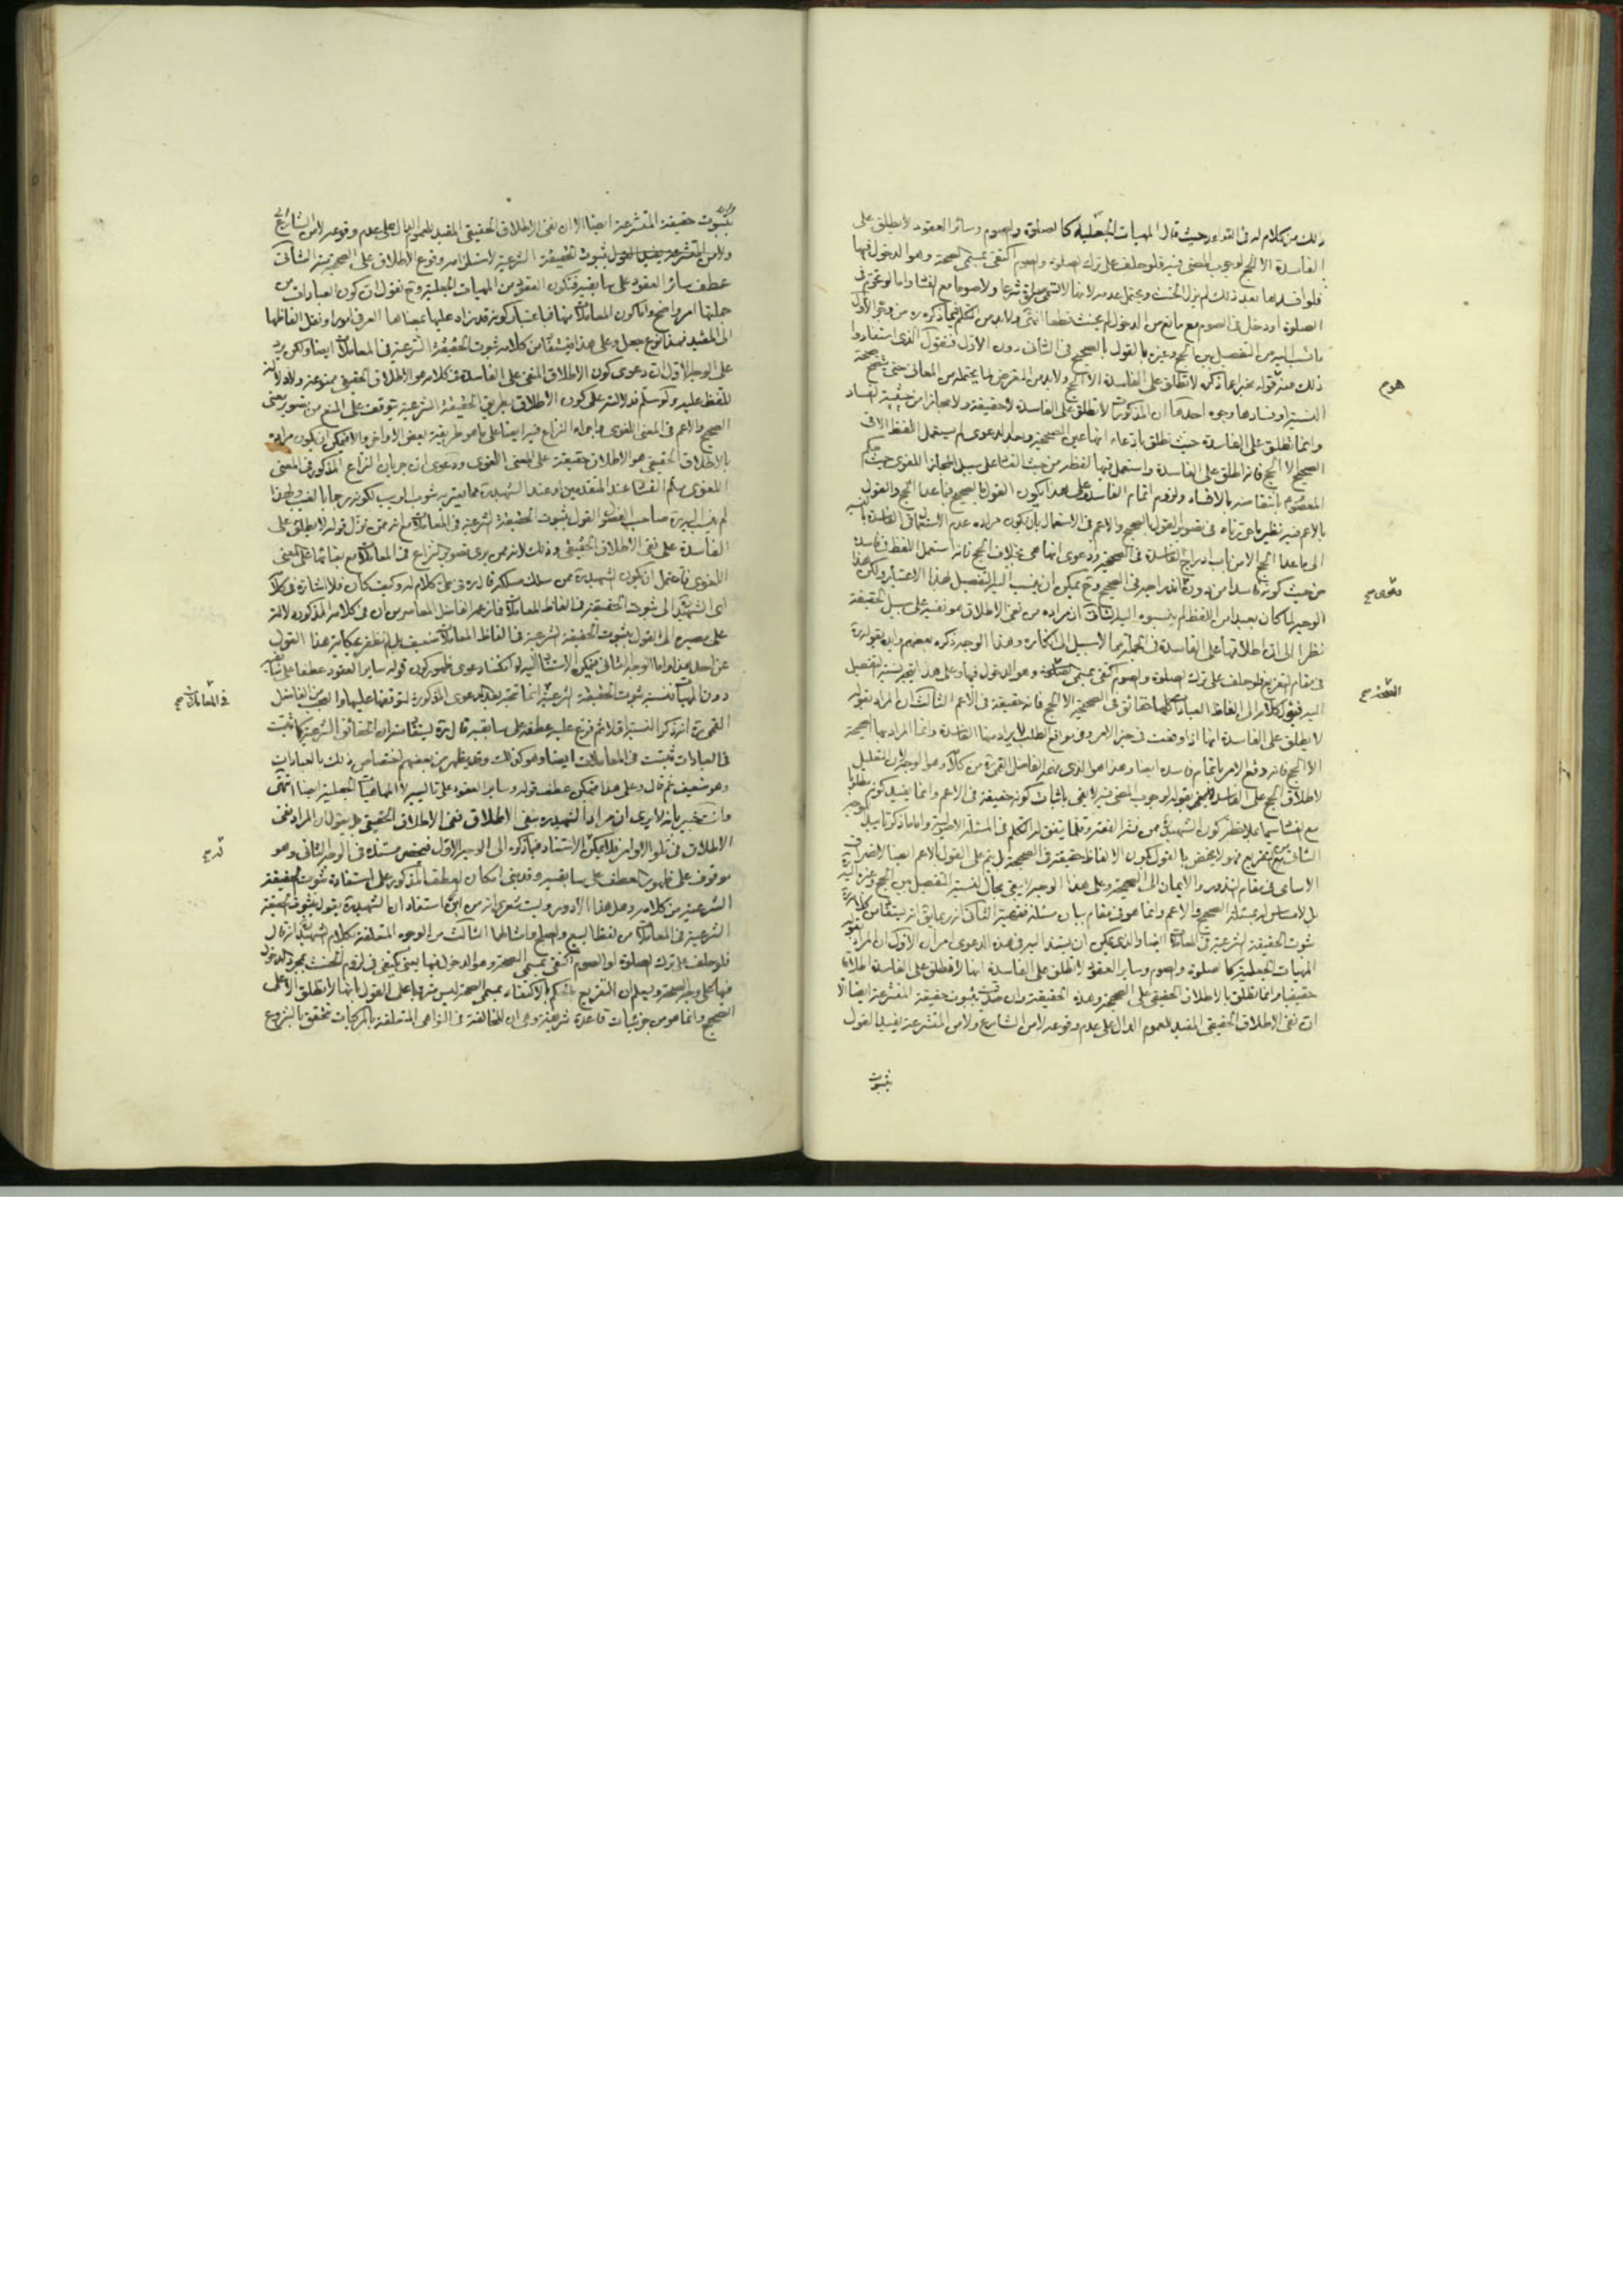 ذلك من كلام له في القواعد حيث قال المهيات الجعلية كالصلوة والصوم وسائر العقود لا يطلق على
الفاسدة الا الحج لوجوب المضي فيه فلو حلف على ترك الصلوة والصوم اكتفى بمسمى الصحة وهو الدخول فيها
فلو افسدها بعد ذلك لم يزل الحنث ويحتمل عدمه لانها لا تسمى صلوة شرعا ولا صوما مع الفساد واما لو تحرم في
الصلوة او دخل في الصوم مع مانع من الدخول لم يحنث قطعا انتهى ولا بد من التكلم فيما ذكروه
ما نسب اليه من التفصيل بين الحج وغيره بالقول بالصحيح في الثاني دون الاول فنقول الذي استفادوا
ذلك منه قوله لا تطلق على الفاسدة الا الحج ولا بد من التعرض لما يحتمله من المعاني حتى يتضح صحة
النسبة وفسادها وجوه احدها ان المذكورات لا تطلق على الفاسدة لا حقيقة ولا مجازا من حيثية الفساد
وانما تطلق على الفاسدة حيث تطلق بادعاء انها عين الصحيحة ولو لا الدعوى لم يستعمل اللفظ الا في
الصحيح الا الحج فانه اطلق على الفاسدة واستعمل فيها لفظه من حيث الفساد على سبيل المجاز اللغوي حيث حكم
المعصوم بانتقاضه بالافساد ولزوم اتمام الفاسد وعلى هذا يكون القول بالصحيح فيما عدا الحج والقول
بالاعم فيه نظير ما مرت في تصوير القول بالصحيح والاعم في الاستعمال بان يكون مراده عدم الاستعمال في الفاسدة بالنسبة
الى ما عدا الحج الا من باب ادراج الفاسدة في الصحيحة ودعوى انها هي بخلاف الحج فانه استعمل اللفظ في فاسده
من حيث كونه فاسدا من دون اندراجه في الصحيح وح يمكن ان ينسب اليه التفصيل بهذا الاعتبار ولكن هذا
الوجه لما كان بعيدا من اللفظ لم ينسبوه اليه الثاني ان مراده من نفي الاطلاق هو نفيه على سبيل الحقيقة
نظرا الى ان اطلاقها على الفاسدة في الجملة مما لا سبيل الى انكاره وهذا الوجه ذكره بعضهم وايده بقوله
في مقام التفريع فلو حلف على ترك الصلوة والصوم اكتفى بمسمى الصحة وهو الدخول فيها وعلى هذا يتجه نسبة التفصيل
اليه فيؤل كلامه الى ان الفاظ العبادات كلها حقائق في الصحيحة الا الحج فانه حقيقة في الاعم الثالث ان المراد بقوله
لا يطلق على الفاسدة انها اذا وقعت في حيز الامر وفي مواقع الطلب لا يراد منها الفاسدة وانما المراد بها الصحيحة
الا الحج فانه وقع الامر باتمام فاسده ايضا وهذا هو الذي زعمه الفاضل القمي ره من كلامه وهو الوجه لان تعليل
اطلاق الحج على الفاسد بقوله لوجوب المضي فيه لا يفي باثبات كونه حقيقة في الاعم وانما يفيد كونه مطلوبا
مع الفساد سيما بملاحظة كون الشهيد ممن فنه الفقه وقلما يتفق له التكلم في المسئلة الاصولية واما ما ذكر تأييدا
الاسامي في مقام النذور والايمان الى الصحيحة وعلى هذا الوجه لا يبقى مجال لنسبة التفصيل بين الحج وغيره اليه
بل لا مساس له بمسئلة الصحيح والاعم وانما هو في مقام بيان مسئلة فقهية الثاني انه ربما يق انه يستفاد من كلامه
ثبوت الحقيقة الشرعية في المعاملات ايضا والذي يمكن ان يستند اليه في هذه الدعوى امران الاول ان المراد بقوله
المهيات الجعلية كالصلوة والصوم وساير العقود لا تطلق على الفاسدة انها لا تطلق على الفاسدة اطلاقا
حقيقيا وانما تطلق بالاطلاق الحقيقي على الصحيحة وهذه الحقيقة وان صدقت بثبوت حقيقة المتشرعة ايضا الا
ان نفي الاطلاق الحقيقي المفيد للعموم الدال على عدم وقوعه لا من الشارع ولا من المتشرعة يفيد القول
بثبوت
هدم
دعوى صح
الصحة صح
بثبوت حقيقة المتشرعة ايضا الا ان نفي الاطلاق الحقيقي المفيد للعموم الدال على عدم وقوعه لا من الشارع
ولا من المتشرعة يفيد القول بثبوت الحقيقة الشرعية لاستلزامه وقوع الاطلاق على الصحيح منه الثاني
عطف سائر العقود على سابقه فتكون العقود من المهيات الجعلية وح نقول ان كون العبادات من
جملتها امر واضح واما كون المعاملات منها فباعتبار كونه قد زاد عليها بمعناها العرفي امورا ونقل الفاظها
الى المقيد فهذا نوع جعل وعلى هذا فيستفاد من كلامه ثبوت الحقيقة الشرعية في المعاملات ايضا ولكن يرد
على الوجه الاول ان دعوى كون الاطلاق المنفي على الفاسدة في كلامه هو الاطلاق الحقيقي ممنوعة ولا دلالة
للفظ عليه ولو سلم فدلالته على كون الاطلاق بطريق الحقيقة الشرعية تتوقف على المنع من تصوير معنى
الصحيح والاعم في المعنى اللغوي واجراء النزاع فيه ايضا على ما هو طريقة بعض الاواخر والا فيمكن ان يكون مراده
بالاطلاق الحقيقي هو الاطلاق حقيقة على المعنى اللغوي ودعوى ان جريان النزاع المذكور في المعنى
اللغوي عند المتقدمين او عند الشهيد ره مما يعتريه شوب الريب لكونه رجما بالغيب ولهذا
لم ينسب اليه ره صاحب الفصول القول بثبوت الحقيقة الشرعية في المعاملات مع انه ممن نزل قوله لا يطلق على
الفاسدة على نفي الاطلاق الحقيقي وذلك لانه ممن يرى تصوير النزاع في المعاملات مع بقائها على المعنى
اللغوي فاحتمل ان يكون الشهيد ره ممن سلك مسلكه قادره في كلام له وكيف كان فلا اشارة في كلام
الشهيد الى ثبوت الحقيقة في الفاظ المعاملات فما زعمه الفاضل المعاصر من ان في كلامه المذكور دلالة
على مصيره الى القول بثبوت الحقيقة الشرعية في الفاظ المعاملات ضعيف بل لم نظفر بحكاية هذا القول
عن احد هذا واما الوجه الثاني فيمكن الاستناد اليه لو انكشف دعوى ظهور كون قوله ساير العقود عطفا على سابقه
دون المهيات فنسبة ثبوت الحقيقة الشرعية انما تتجه بعد الدعوى المذكورة لتوقفها عليها والعجب من الفاضل
القمي ره انه ذكر النسبة اولا ثم فرع عليه عطفه على سابقه قال ره يستفاد منه ان الحقائق الشرعية كما ثبتت
في العبادات ثبتت في المعاملات ايضا وهو كذلك وقد يظهر من بعضهم اختصاص ذلك بالعبادات
وهو ضعيف ثم قال وعلى هذا فيمكن عطف قوله وساير العقود على تاليه الماهيات الجعلية ايضا انتهى
وانت خبير بانه لا يرى ان مراد الشهيد ره بنفي الاطلاق نفي الاطلاق الحقيقي بل يقول ان المراد نفي
الاطلاق في تلو الاوامر فلا يمكن الاستناد فيما ذكره الى الوجه الاول فينحصر مستنده في الوجه الثاني وهو
موقوف على ظهور العطف على سابقه وقد بنى امكان العطف المذكور على استفادة ثبوت الحقيقة
الشرعية من كلامه وهل هذا الا دور وليت شعري انه من اين استفاد ان الشهيد ره يقول بثبوت الحقيقة
الشرعية في المعاملات من لفظ البيع والصلح وامثالهما الثالث من الوجوه المتعلقة بكلام الشهيد انه قال
فلو حلف على ترك الصلوة او الصوم اكتفى بمسمى الصحة وهو الدخول فيها يعني يكتفى في لزوم الحنث بمجرد الدخول
فيها على وجه الصحة وليعلم ان التفريع للحكم بالاكتفاء بمسمى الصحة ليس متفرعا على القول بانها لا تطلق الا على
الصحيح وانما هو من جزئيات قاعدة شرعية وهي ان المخالفة في النواهي المتعلقة بالمركبات تتحقق بالشروع
في المعاملات صح
قدح